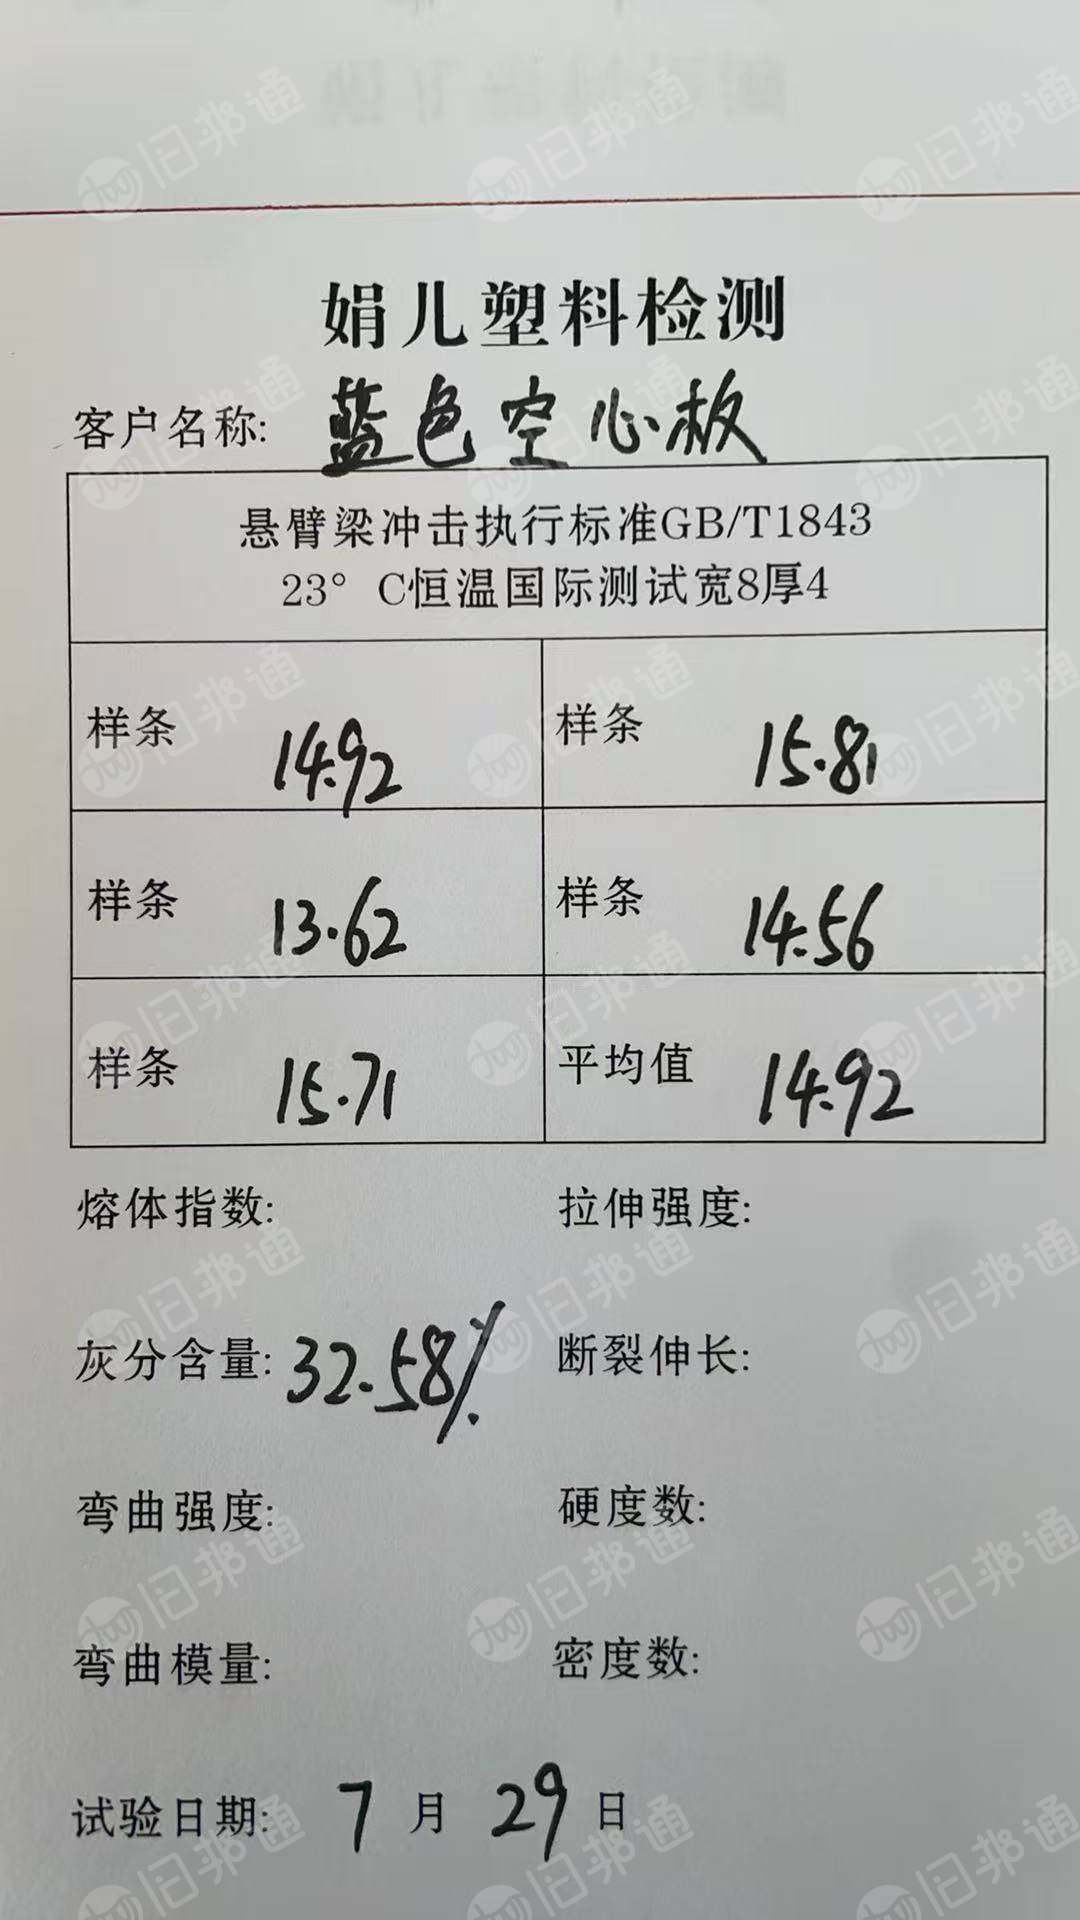 娟儿塑料检测
客户名称: 蓝色空心板
悬臂梁冲击执行标准GB/T1843
23° C恒温国际测试宽8厚4
样条 14.92 样条 15.81
样条 13.62 样条 14.56
样条 15.71 平均值 14.92
熔体指数: 拉伸强度:
灰分含量: 32.58% 断裂伸长:
弯曲强度: 硬度数:
弯曲模量: 密度数:
试验日期: 7 月 29 日
旧邦通